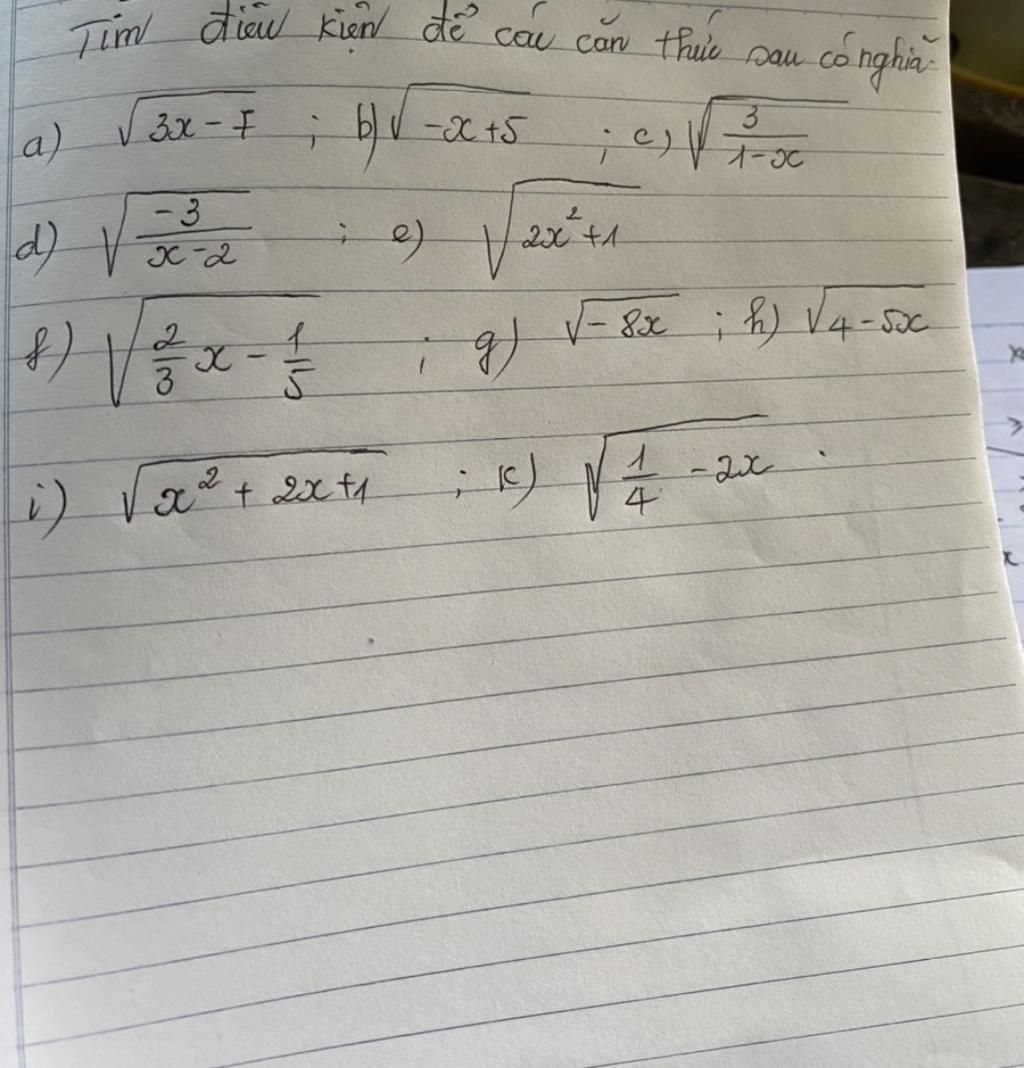 Tìm điều kiện để các căn thức sau có nghĩa:
a) √(3x - 7) ; b) √(-x + 5) ; c) √(3/(1-x))
d) √(-3/(x-2)) ; e) √(2x² + 1)
f) √(2/3 x - 1/5) ; g) √(-8x) ; h) √(4 - 5x)
i) √(x² + 2x + 1) ; k) √(1/4 - 2x) .